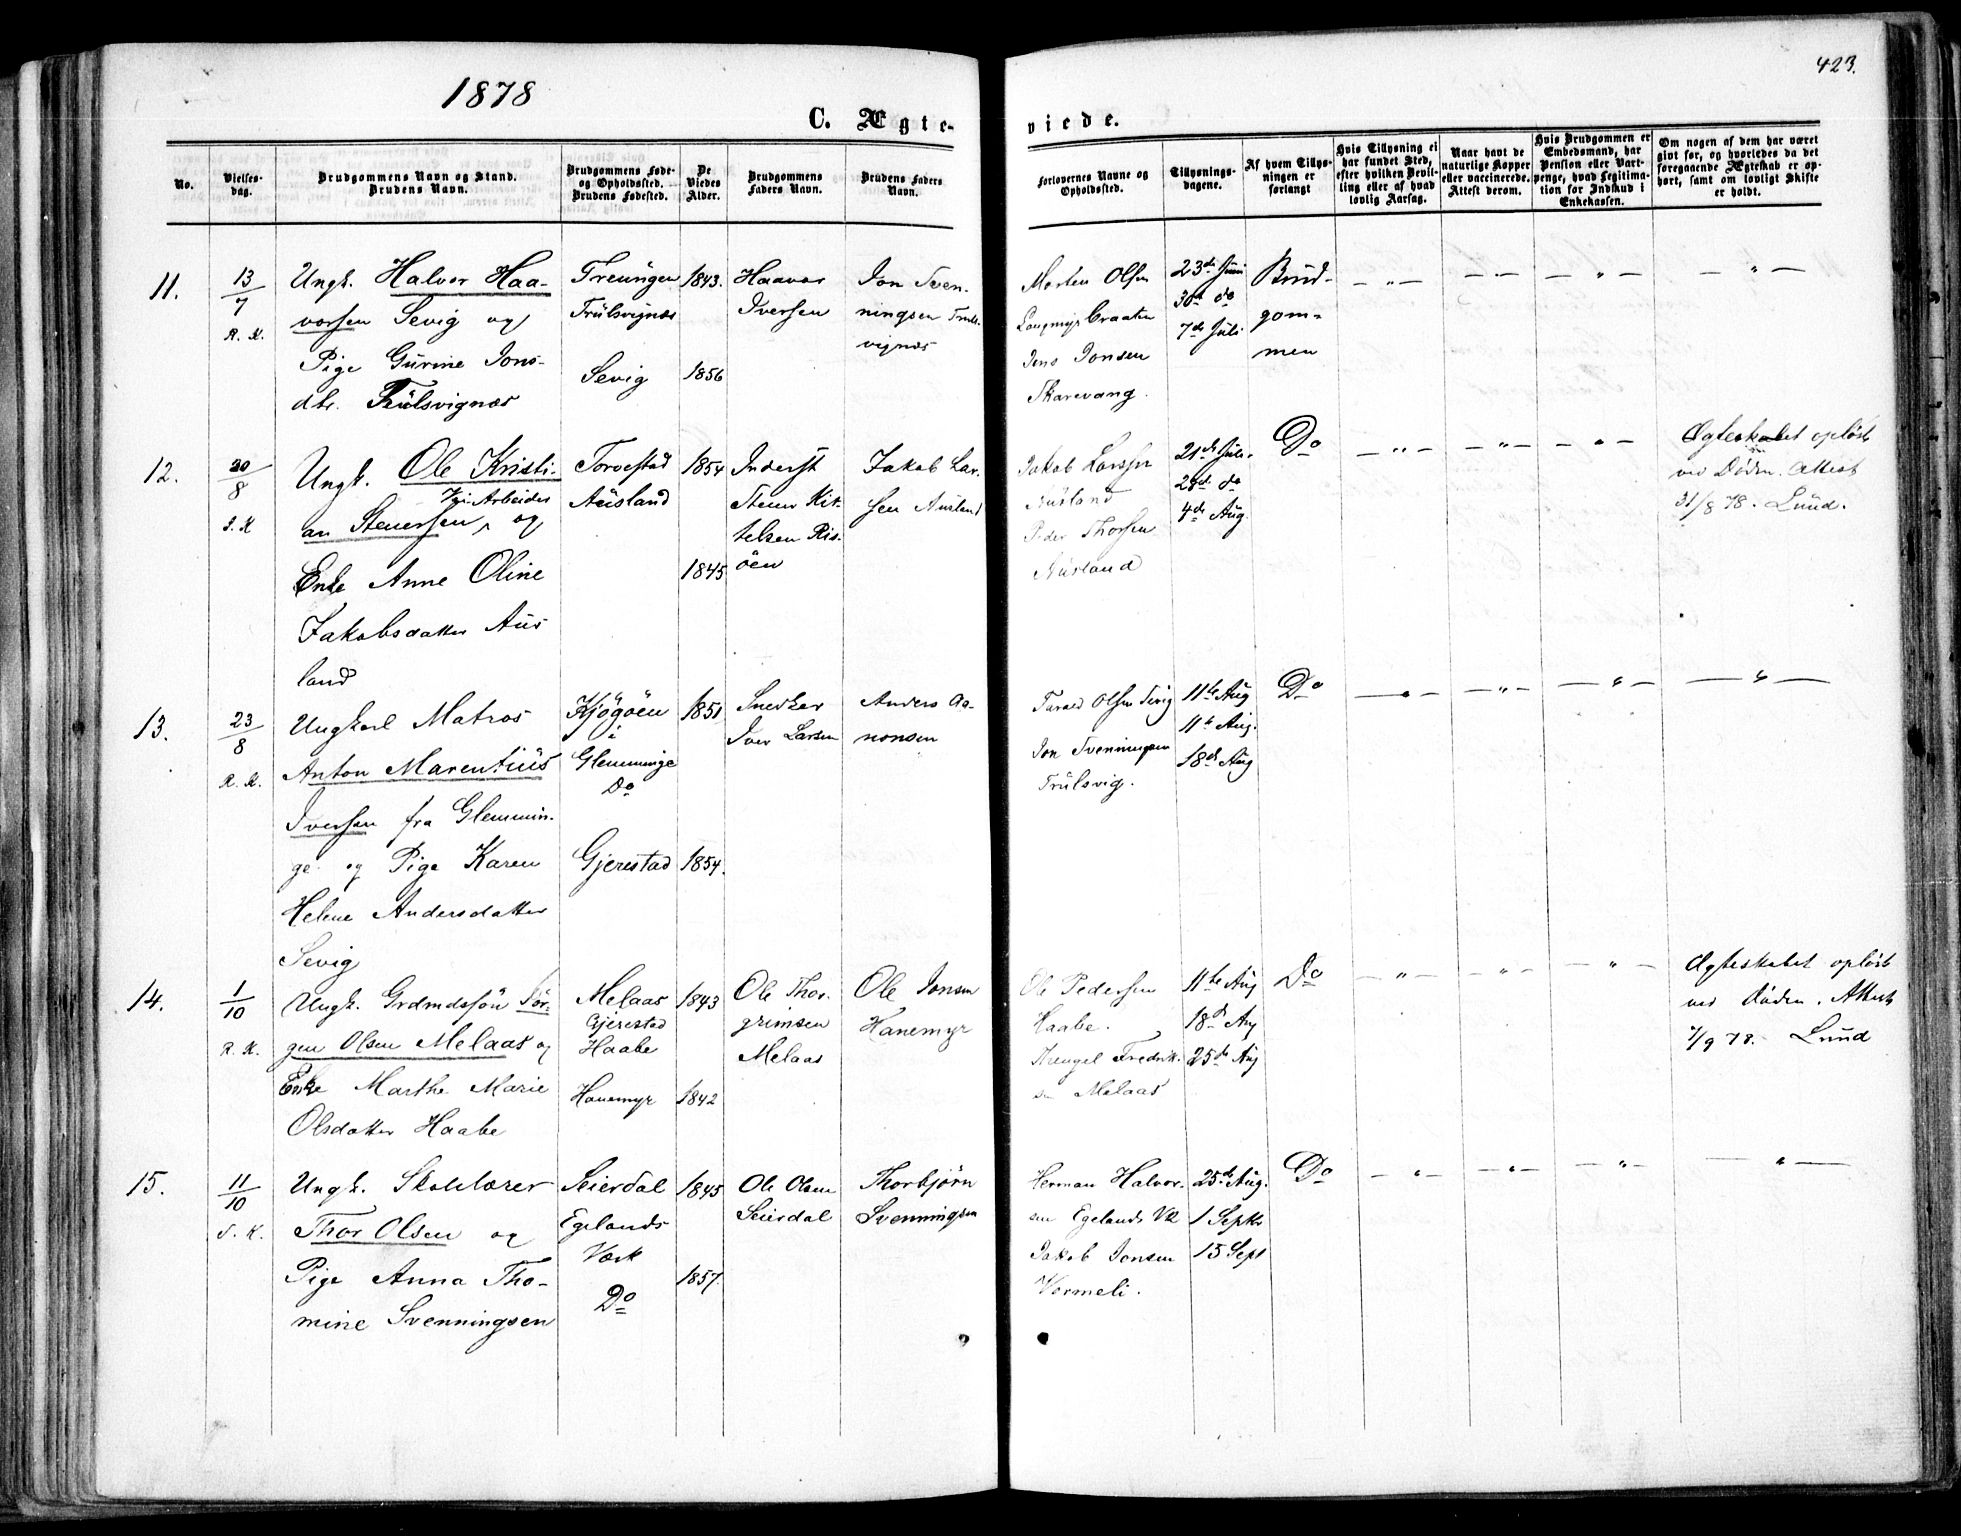 1878
423.
C. Ægte-
viede.
No.
Vielses-
dag.
Brudgommens Navn og Stand.
Brudens Navn.
Brudgommens Føde-
og Opholdssted.
Brudens Fødested.
De
Viedes
Alder.
Brudgommens
Faders Navn.
Brudens Faders
Navn.
Forlovernes Navne og
Opholdssted.
Tillysnings-
dagene.
Af hvem Tillys-
ningen er
forlangt
Hvis Tillysning ei
har fundet Sted,
efter hvilken Bevil-
ling eller af hvad
lovlig Aarsag.
Naar havt de
naturlige Kopper
eller vaccinerede.
Attest derom.
Hvis Brudgommen er
Embedsmand, har
Pension eller Vart-
penge, hvad Legitima-
tion for Indskud i
Enkekassen.
Om nogen af dem har været
givt før, og hvorledes da det
foregaaende Ægteskab er op-
hørt, samt om lovligt Skifte
er holdt.
11.
13/7
R. K.
Ungk. Halvor Haa-
vorsen Sevig og
Pige Gurine Jons-
dtr. Trulsvignæs
Treungen
Trulsvignæs
Sevig
1843.
1856
Haavor
Iversen
Jon Sven-
ningsen Truls-
vignæs
Morten Olsen
Longmyr Braaten
Jens Jonsen
Skarevang.
23de Juni
30te do
7de Juli
Brud-
gom-
men
12.
20/8
S. K
Ungk. Ole Kristi-
Vei Arbeider
an Steuersen, og
Enke Anne Oline
Jakobsdatter Aus
land
Torvestad
Ausland
1854
1845
Inderst
Steuer Kit-
telsen Ris-
öen
Jakob Lar-
sen Ausland
Jakob Larsen
Ausland
Peder Thorsen
Ausland
21de Juli.
28de do
4de Aug.
Do
Ægteskabet opløst
ved Døden. Attest
31/8 78. Lund.
13.
23/8
R. K.
Ungkarl Matros
Anton Marentius
Iversen fra Glemmin-
ge og Pige Karen
Helene Andersdatter
Sevig
Kjøgöen
i
Glemminge
Do
Gjerestad
1851
1854.
Snedker
Iver Larsen
Anders Aa-
nonsen
Tarald Olsen Sevig
Jon Svenningsen
Trulsvig.
11te Aug
11te Aug.
18de Aug
Do
14.
1/10
R. K.
Ungk. Grdmdssön Jör-
gen Olsen Melaas og
Enke Marthe Marie
Olsdatter Haabe
Melaas
Gjerestad
Haabe
Hanemyr
1843
1842
Ole Thor-
grimsen
Melaas
Ole Jonsen
Hanemyr
Ole Pedersen
Haabe.
Fredrik-
sen Melaas
11te Aug
18de Aug
25de Aug
Do
Ægteskabet opløst
ved Døden. Attest
7/9 78. Lund
15.
11/10
S. K.
Ungk. Skolelærer
Thor Olsen og
Pige Anna Tho-
mine Svenningsen
Seierdal
Egelands
Værk
Do
1845
1857.
Ole Olsen
Seierdal
Thorbjörn
Svenningsen
Herman Halvor-
sen Egelands Vk
Jakob Jonsen
Vormeli.
25de Aug.
1 Septbr
15 Sept
Do